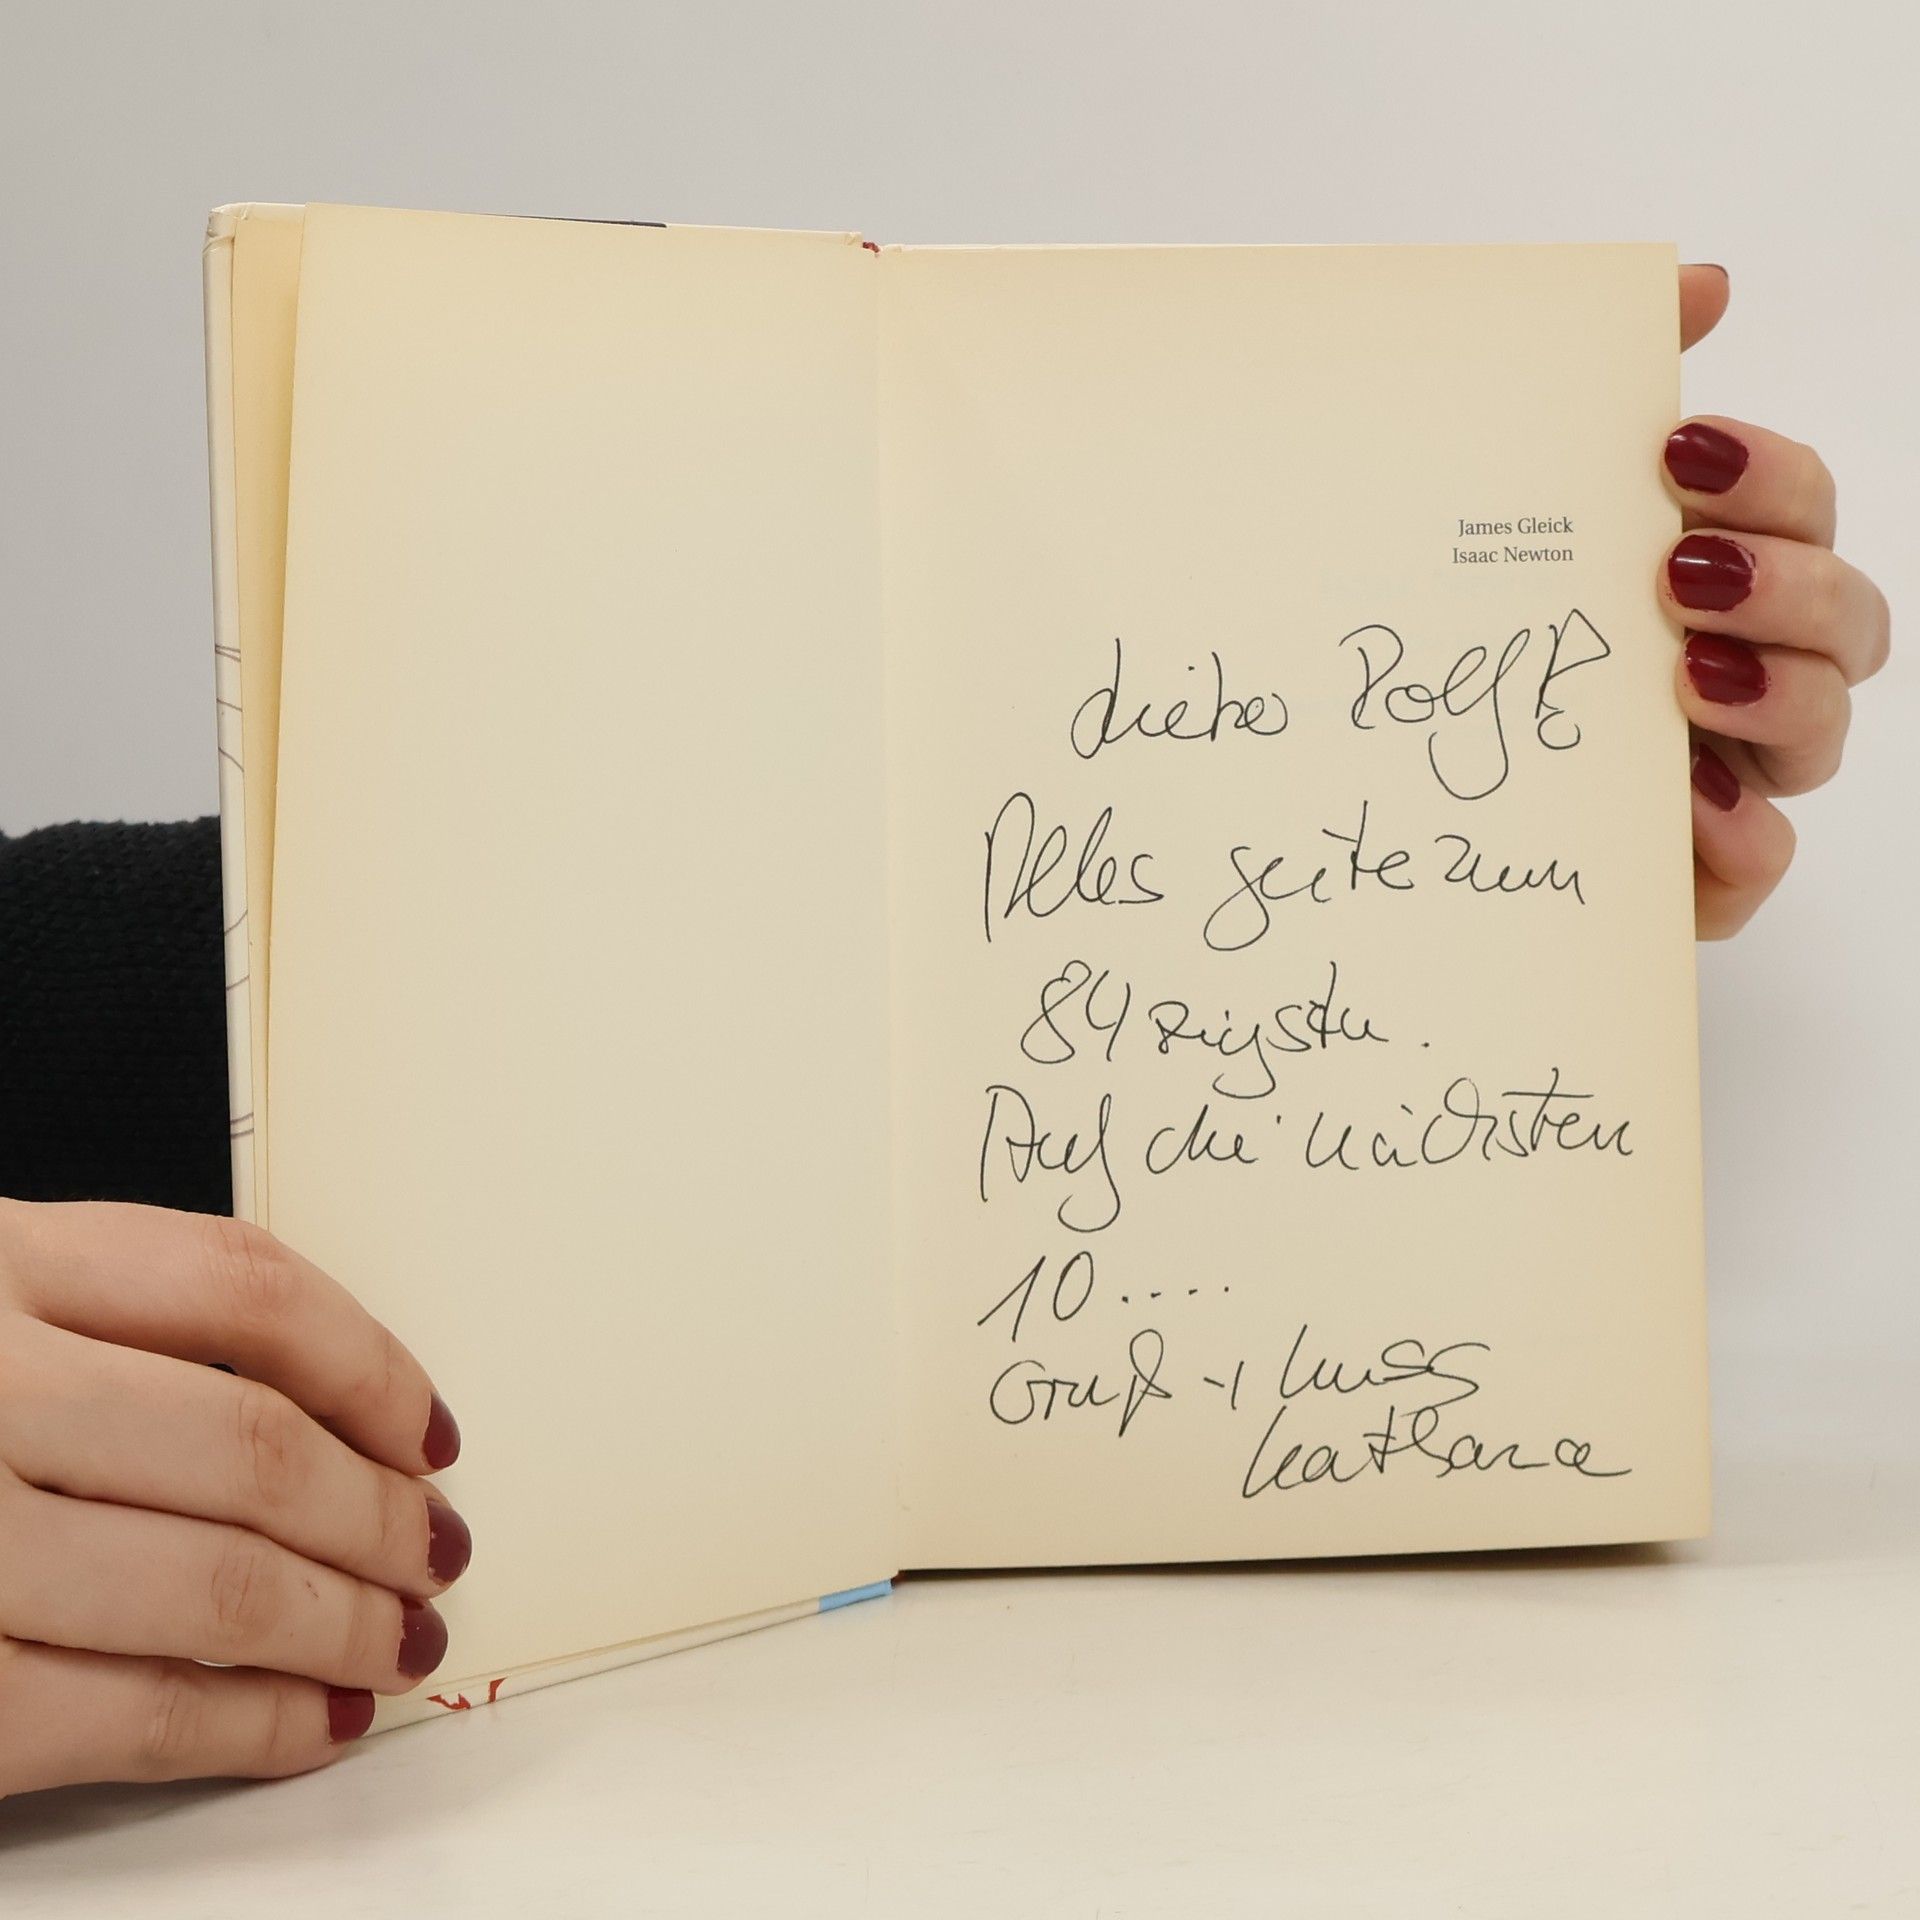 James Gleick
Isaac Newton
Lieber Rolf!
Alles gute zum
84zigsten.
Auf die nächsten
10....
Gruß + Kuss